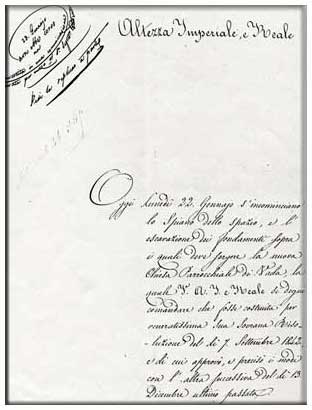 22. Gennajo
Altezza Imperiale, e Reale
Oggi lunedì 22. Gennajo s'incominciano
lo Spiano dello spazio, e l'
escavazione dei fondamenti sopra
i quali deve sorgere la nuova
Chiesa Parrocchiale di Vada, la
quale V. A. I. e Reale si degnò
comandare che fosse costruita per
veneratissima Sua Sovrana Riso-
luzione del dì 7. Settembre 1842.
e di cui approvò, e precisò i modi
con l'altra successiva del dì 13
Dicembre ultimo passato.